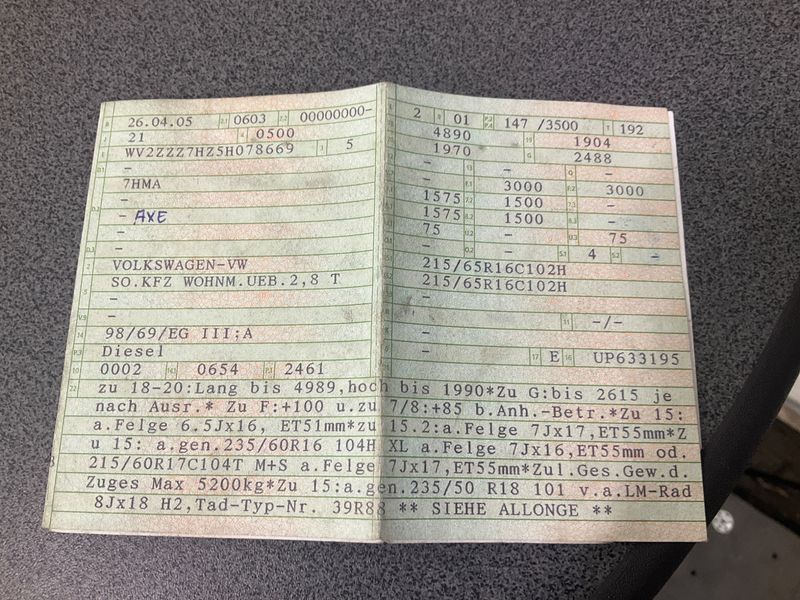 26.04.05 0603 00000000-
21 0500
WV2ZZZ7HZ5H078669 5
-
7HMA
-
- AXE
-
-
VOLKSWAGEN-VW
SO.KFZ WOHNM.UEB.2,8 T
-
-
98/69/EG III;A
Diesel
0002 0654 2461
2 01 147 /3500 192
4890 1904
1970 2488
- - -
- 3000 3000
1575 1500 -
1575 1500 -
75 - 75
- - 4 -
215/65R16C102H
215/65R16C102H
-
- -/-
-
- E UP633195
zu 18-20:Lang bis 4989,hoch bis 1990*Zu G:bis 2615 je
nach Ausr.* Zu F:+100 u.zu 7/8:+85 b.Anh.-Betr.*Zu 15:
a.Felge 6.5Jx16, ET51mm*zu 15.2:a.Felge 7Jx17,ET55mm*Z
u 15: a.gen.235/60R16 104H XL a.Felge 7Jx16,ET55mm od.
215/60R17C104T M+S a.Felge 7Jx17,ET55mm*Zul.Ges.Gew.d.
Zuges Max 5200kg*Zu 15:a.gen.235/50 R18 101 v.a.LM-Rad
8Jx18 H2,Tad-Typ-Nr. 39R88 ** SIEHE ALLONGE **